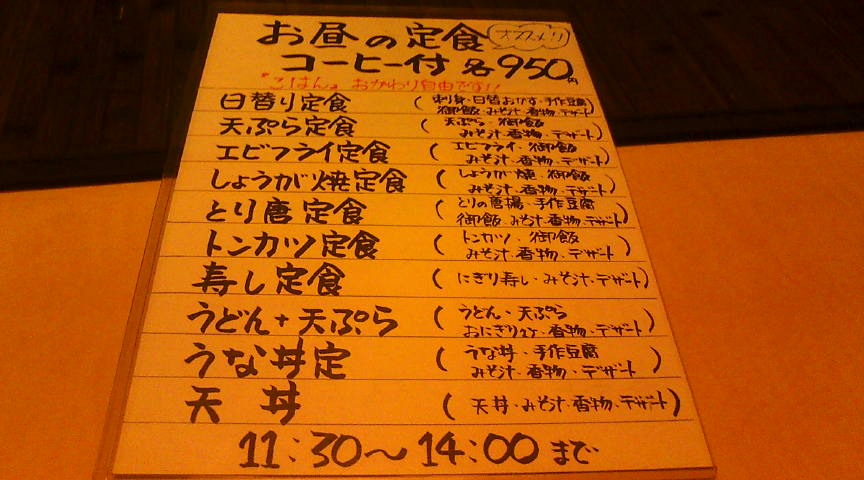 お昼の定食 オススメ!!
コーヒー付 各950円
『ごはん』おかわり自由です!!
日替り定食 (刺身・日替おかず・手作豆腐
御飯・みそ汁・香物・デザート)
天ぷら定食 (天ぷら・御飯
みそ汁・香物・デザート)
エビフライ定食 (エビフライ・御飯
みそ汁・香物・デザート)
しょうが焼定食 (しょうが焼・御飯
みそ汁・香物・デザート)
とり唐定食 (とりの唐揚・手作豆腐
御飯・みそ汁・香物・デザート)
トンカツ定食 (トンカツ・御飯
みそ汁・香物・デザート)
寿し定食 (にぎり寿し・みそ汁・デザート)
うどん+天ぷら (うどん・天ぷら
おにぎり2ケ・香物・デザート)
うな丼定 (うな丼・手作豆腐
みそ汁・香物・デザート)
天丼 (天丼・みそ汁・香物・デザート)
11:30～14:00まで